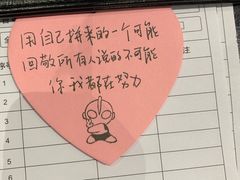 用自己拼来的一个可能
回敬所有人说的不可能
你我都在努力